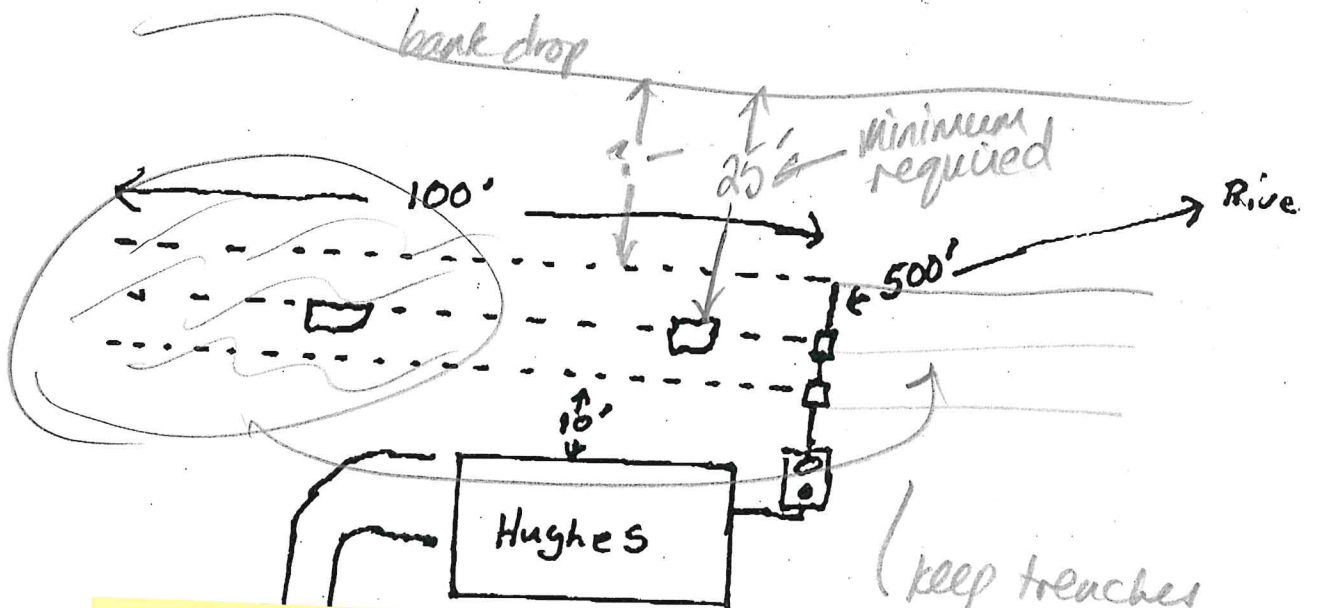 bank drop
? 25' minimum
required
100'
500'
Rive
10'
Hughes
keep trenches